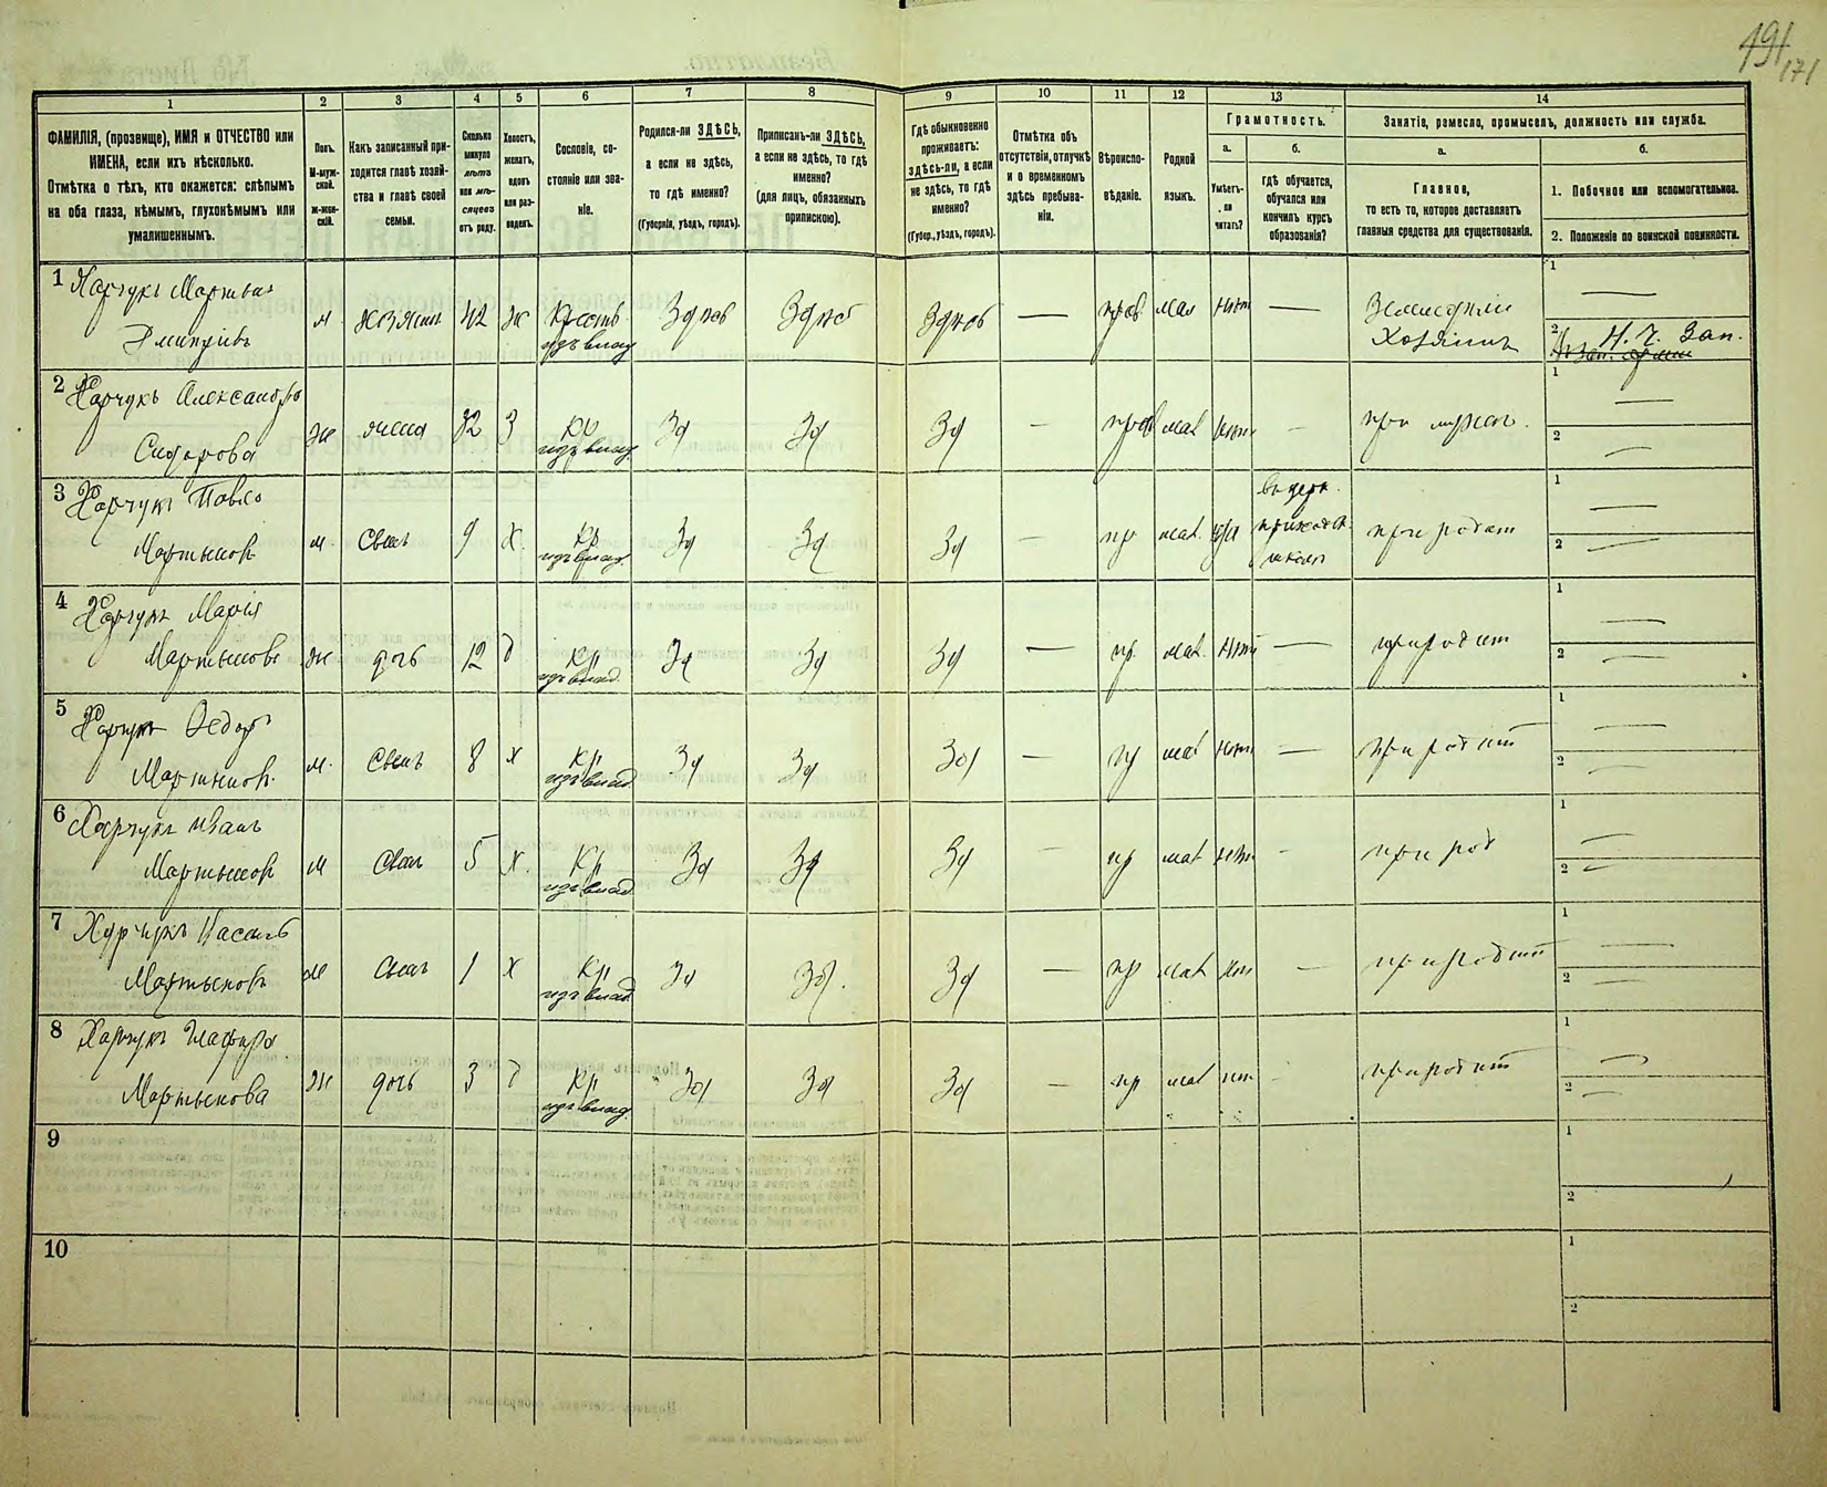 491
171
1
2
3
4
5
6
7
8
9
10
11
12
13
14
ФАМИЛІЯ, (прозвище), ИМЯ и ОТЧЕСТВО или
ИМЕНА, если ихъ нѣсколько.
Отмѣтка о тѣхъ, кто окажется: слѣпымъ
на оба глаза, нѣмымъ, глухонѣмымъ или
умалишеннымъ.
Полъ.
М-муж-
ской.
Ж-жен-
скій.
Какъ записанный при-
ходится главѣ хозяй-
ства и главѣ своей
семьи.
Сколько
минуло
лѣтъ
или мѣ-
сяцевъ
отъ роду.
Холостъ,
женатъ,
вдовъ
или раз-
веденъ.
Сословіе, со-
стояніе или зва-
ніе.
Родился-ли ЗДѢСЬ,
а если не здѣсь,
то гдѣ именно?
(Губернія, уѣздъ, городъ).
Приписанъ-ли ЗДѢСЬ,
а если не здѣсь, то гдѣ
именно?
(для лицъ, обязанныхъ
припискою).
Гдѣ обыкновенно
проживаетъ:
здѣсь-ли, а если
не здѣсь, то гдѣ
именно?
(Губер., уѣздъ, городъ).
Отмѣтка объ
отсутствіи, отлучкѣ
и о временномъ
здѣсь пребыва-
ніи.
Вѣроиспо-
вѣданіе.
Родной
языкъ.
Грамотность.
а.
Умѣетъ-
ли
читать?
б.
гдѣ обучается,
обучался или
кончилъ курсъ
образованія?
Занятіе, ремесло, промыселъ, должность или служба.
а.
Главное,
то есть то, которое доставляетъ
главныя средства для существованія.
б.
1. Побочное или вспомогательное.
2. Положеніе по воинской повинности.
1 Харчукъ Мартынъ
Дмитріевъ
м хозяинъ 42 ж Крестъ
изъ влад Здѣсь Здѣсь Здѣсь — прав мал нѣт — Земледѣліе
Хозяинъ
1 —
2 Н. Ч. Зап.
2 Харчукъ Александра
Сидорова
ж жена 32 З Кр
изъ влад. Зд Зд Зд — прав мал нѣт — при мужѣ.
1 —
2 —
3 Харчукъ Павло
Мартынов
м. Сынъ 9 х. Кр
изъ влад. Зд Зд Зд — пр мал. да
въ церк.
приходск.
школѣ
при родит
1 —
2 —
4 Харчукъ Марія
Мартынова
ж дочь 12 д Кр
изъ влад. Зд Зд Зд — пр. мал. нѣт — при родит
1 —
2 —
5 Харчукъ Ѳедоръ
Мартынов.
м. Сынъ 8 х Кр
изъ влад. Зд Зд Зд — пр мал нѣт — при родит
1 —
2 —
6 Харчукъ Иванъ
Мартынов
м Сынъ 5 х. Кр
изъ влад. Зд Зд Зд — пр мал нѣт — при род
1 —
2 —
7 Харчукъ
Мартыновъ
м Сынъ 1 х Кр
изъ влад Зд Зд. Зд — пр мал нѣт — при родит
1 —
2 —
8 Харчукъ
Мартынова
ж дочь 3 д Кр
изъ влад. Зд Зд Зд — пр мал нѣт — при родит
1 —
2 —
9
1
2
10
1
2